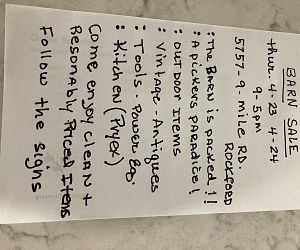 BARN SALE
thur. 4-23 4-24
9-5pm
5757-9-mile RD.
ROCKFORD
: The BARN is packed!!
: A pickers PARADICE!
: OUTDOOR ITEMS
: Vintage - Antiques
: Tools - Power Eq.
: Kitchen (Pyrex)
Come enjoy CLEAN +
Resonably Priced Items
Follow the signs